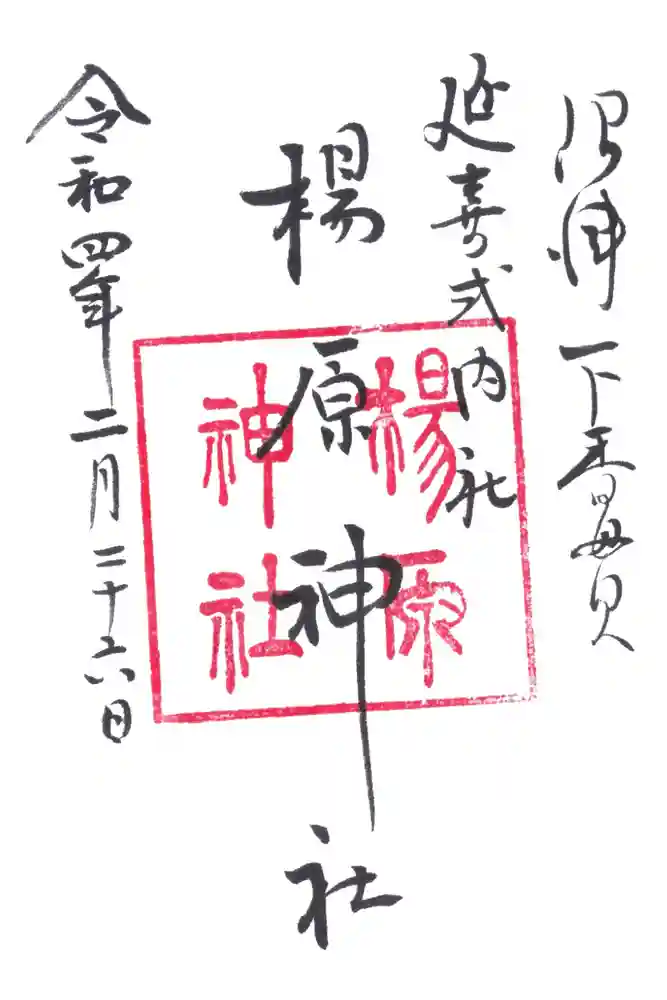 沼津下香貫
延喜式内社
楊原神社
楊原
神社
令和四年二月二十六日